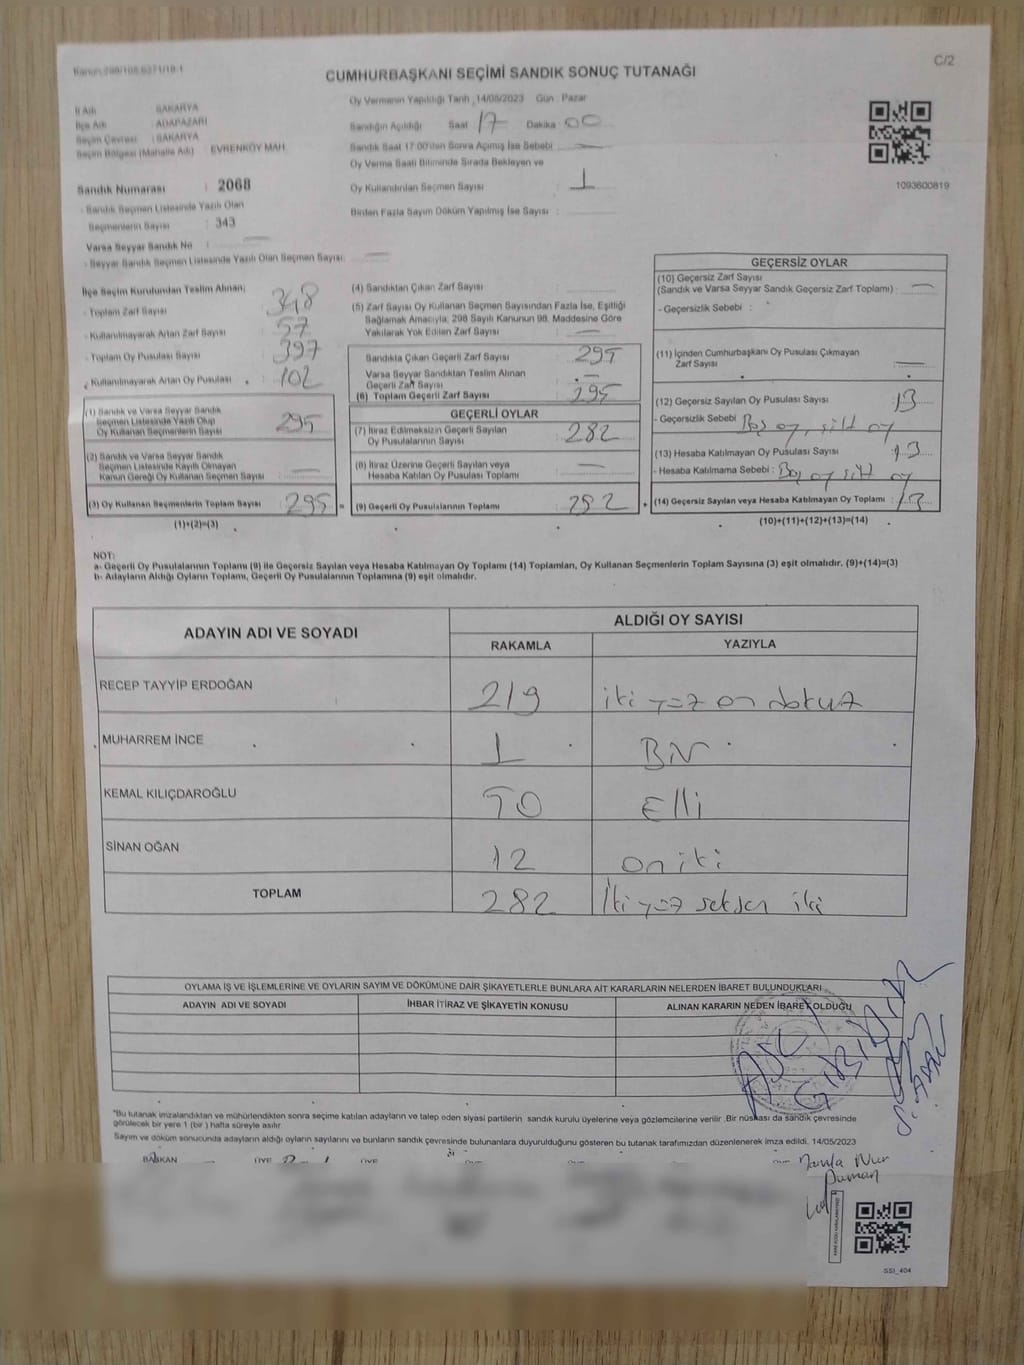 C/2
CUMHURBAŞKANI SEÇİMİ SANDIK SONUÇ TUTANAĞI
İl Adı : SAKARYA
İlçe Adı : ADAPAZARI
Seçim Çevresi : SAKARYA
Seçim Bölgesi (Mahalle Adı) EVRENKÖY MAH
Sandık Numarası : 2068
- Sandık Seçmen Listesinde Yazılı Olan
Seçmenlerin Sayısı : 343
Varsa Seyyar Sandık No :
- Seyyar Sandık Seçmen Listesinde Yazılı Olan Seçmen Sayısı:
Oy Vermenin Yapıldığı Tarih :14/05/2023 Gün : Pazar
Sandığın Açıldığı Saat 17 Dakika 00
Sandık Saat 17:00'den Sonra Açılmış İse Sebebi
Oy Verme Saati Bitiminde Sırada Bekleyen ve
Oy Kullandırılan Seçmen Sayısı : 1
Birden Fazla Sayım Döküm Yapılmış İse Sayısı :
1093600819
İlçe Seçim Kurulundan Teslim Alınan;
- Toplam Zarf Sayısı : 348
- Kullanılmayarak Artan Zarf Sayısı : 57
- Toplam Oy Pusulası Sayısı : 397
- Kullanılmayarak Artan Oy Pusulası : 102
(1) Sandık ve Varsa Seyyar Sandık
Seçmen Listesinde Yazılı Olup
Oy Kullanan Seçmenlerin Sayısı : 295
(2) Sandık ve Varsa Seyyar Sandık
Seçmen Listesinde Kayıtlı Olmayan
Kanun Gereği Oy Kullanan Seçmen Sayısı :
(3) Oy Kullanan Seçmenlerin Toplam Sayısı : 295
(1)+(2)=(3)
(4) Sandıktan Çıkan Zarf Sayısı :
(5) Zarf Sayısı Oy Kullanan Seçmen Sayısından Fazla İse, Eşitliği
Sağlamak Amacıyla, 298 Sayılı Kanunun 98. Maddesine Göre
Yakılarak Yok Edilen Zarf Sayısı :
Sandıkta Çıkan Geçerli Zarf Sayısı : 295
Varsa Seyyar Sandıktan Teslim Alınan
Geçerli Zarf Sayısı :
(6) Toplam Geçerli Zarf Sayısı : 295
GEÇERLİ OYLAR
(7) İtiraz Edilmeksizin Geçerli Sayılan
Oy Pusulalarının Sayısı : 282
(8) İtiraz Üzerine Geçerli Sayılan veya
Hesaba Katılan Oy Pusulası Toplamı :
= (9) Geçerli Oy Pusulalarının Toplamı : 282 +
GEÇERSİZ OYLAR
(10) Geçersiz Zarf Sayısı
(Sandık ve Varsa Seyyar Sandık Geçersiz Zarf Toplamı) :
- Geçersizlik Sebebi :
(11) İçinden Cumhurbaşkanı Oy Pusulası Çıkmayan
Zarf Sayısı :
(12) Geçersiz Sayılan Oy Pusulası Sayısı : 13
- Geçersizlik Sebebi : Boş oy,
(13) Hesaba Katılmayan Oy Pusulası Sayısı : 13
- Hesaba Katılmama Sebebi : Boş oy
(14) Geçersiz Sayılan veya Hesaba Katılmayan Oy Toplamı : 13
(10)+(11)+(12)+(13)=(14)
NOT:
a- Geçerli Oy Pusulalarının Toplamı (9) ile Geçersiz Sayılan veya Hesaba Katılmayan Oy Toplamı (14) Toplamları, Oy Kullanan Seçmenlerin Toplam Sayısına (3) eşit olmalıdır. (9)+(14)=(3)
b- Adayların Aldığı Oyların Toplamı, Geçerli Oy Pusulalarının Toplamına (9) eşit olmalıdır.
ADAYIN ADI VE SOYADI ALDIĞI OY SAYISI
RAKAMLA YAZIYLA
RECEP TAYYİP ERDOĞAN 219 iki yüz on dokuz
MUHARREM İNCE 1 Bir
KEMAL KILIÇDAROĞLU 50 Elli
SİNAN OĞAN 12 on iki
TOPLAM 282 İki yüz seksen iki
OYLAMA İŞ VE İŞLEMLERİNE VE OYLARIN SAYIM VE DÖKÜMÜNE DAİR ŞİKAYETLERLE BUNLARA AİT KARARLARIN NELERDEN İBARET BULUNDUKLARI
ADAYIN ADI VE SOYADI İHBAR İTİRAZ VE ŞİKAYETİN KONUSU ALINAN KARARIN NEDEN İBARET OLDUĞU
ASLI GİBİDİR
"Bu tutanak imzalandıktan ve mühürlendikten sonra seçime katılan adayların ve talep eden siyasi partilerin sandık kurulu üyelerine veya gözlemcilerine verilir .Bir nüshası da sandık çevresinde
görülecek bir yere 1 (bir ) hafta süreyle asılır
Sayım ve döküm sonucunda adayların aldığı oyların sayılarını ve bunların sandık çevresinde bulunanlara duyurulduğunu gösteren bu tutanak tarafımızdan düzenlenerek imza edildi. 14/05/2023
BAŞKAN ÜYE ÜYE
Nur
Duman
SSI_404